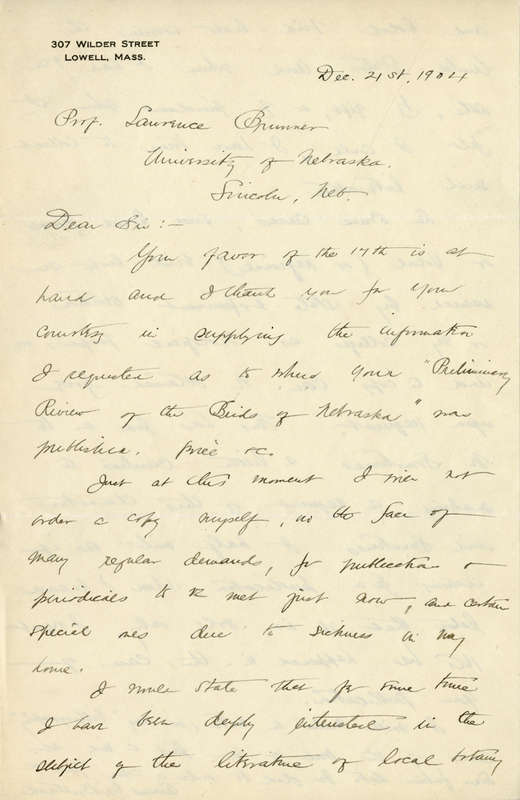 307 WILDER STREET
LOWELL, MASS.
Dec. 21st, 1904
Prof. Lawrence Bruner
University of Nebraska.
Lincoln, Neb.
Dear Sir:-
Your favor of the 17th is at
hand and I thank you for your
courtesy in supplying the information
I requested as to where your "Preliminary
Review of the Birds of Nebraska" was
published, price &c.
Just at this moment I will not
order a copy myself, as the face of
many regular demands, for publications or
periodicals to be met just now, and certain
special ones due to sickness in my
home.
I would state that for some time
I have been deeply interested in the
subject of the literature of local botany